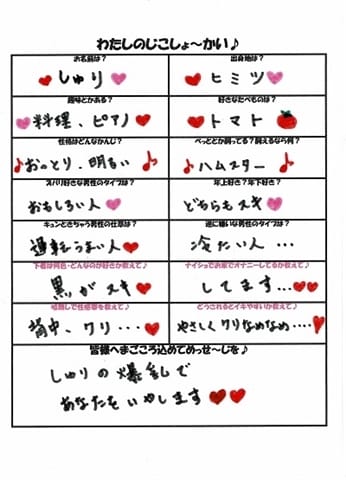 わたしのじこしょ〜かい♪
お名前は？ 出身地は？
しゅり ヒミツ
趣味とかある？ 好きなたべものは？
料理、ピアノ トマト
性格はどんなかんじ？ ぺっととか飼ってる？飼えるなら何？
おっとり、明るい ハムスター
ズバリ好きな男性のタイプは？ 年上好き？年下好き？
おもしろい人 どちらもスキ
キュンときちゃう男性の仕草は？ 逆に嫌いな男性のタイプは？
運転うまい人 冷たい人…
下着は何色・どんなのが好きか教えて♪ ナイショでお家でオナニーしてるか教えて♪
黒がスキ してます…
性感帯を教えて♪ どうされるとイキやすいか教えて♪
背中、クリ… やさしくクリなめなめ…
皆様へまごころ込めてめっせ〜じを♪
しゅりの爆乳で
あなたをいやします